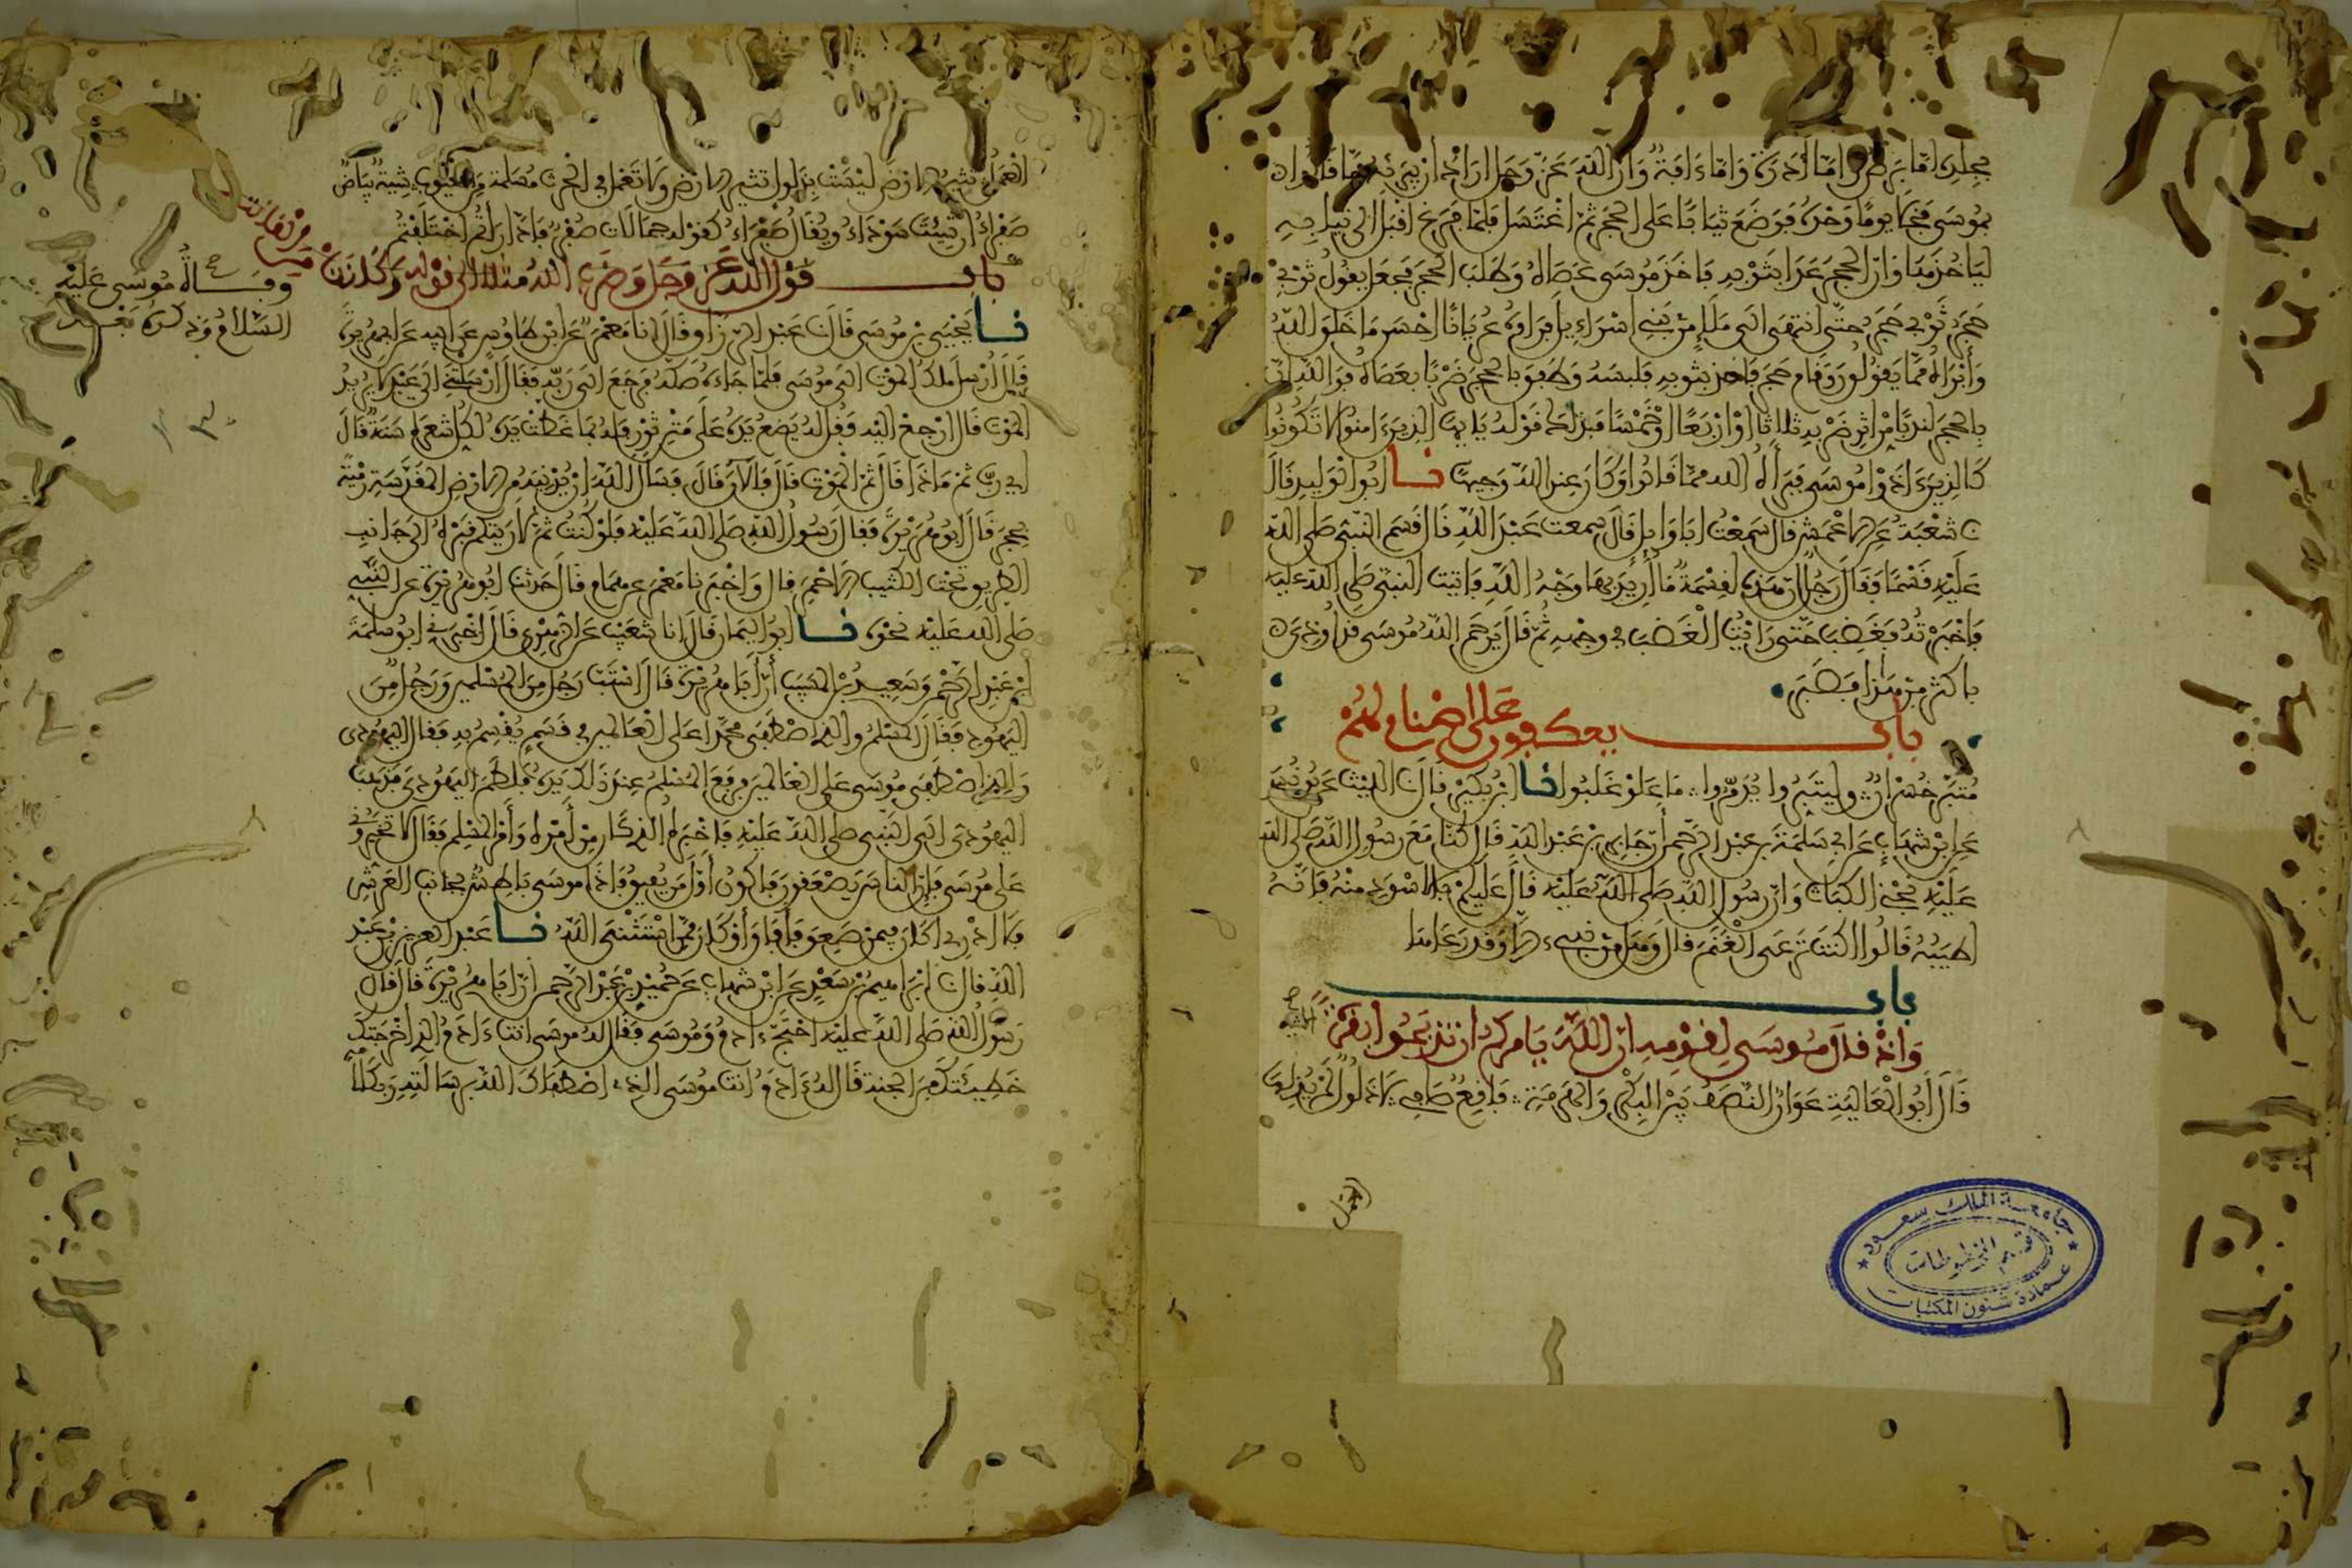 بجلده اما برص واما أدرة واما ءافة وأن الله عز وجل اراد ان يبرئه مما قالوا
بموسى فخلا يوما وحده فوضع ثيابا على الحجر ثم اغتسل فلما فرغ اقبل الى ثيابه
ليأخذها وان الحجر عدا بثوبه فاخذ موسى عصاه وطلب الحجر فجعل يقول ثوبي
حجر ثوبي حجر حتى انتهى الى ملإ من بني اسراءيل فرأوه عريانا احسن ما خلق الله
وأبرأه مما يقولون وقام حجر فاخذ بثوبه فلبسه وطفق بالحجر ضربا بعصاه فوالله ان
بالحجر لندبا من اثر ضربه ثلاثا او اربعا او خمسا فذلك قوله يايها الذين ءامنوا لا تكونوا
كالذين ءاذوا موسى فبرأه الله مما قالوا وكان عند الله وجيها نا ابوا لوليد قال
نا شعبة عن الاعمش قال سمعت ابا وايل قال سمعت عبد الله قال قسم النبي صلى الله
عليه قسما فقال رجل ان هذه لقسمة ما أريد بها وجه الله فاتيت النبي صلى الله عليه
فاخبرته فغضب حتى رايت الغضب في وجهه ثم قال يرحم الله موسى قد اوذي
باكثر من هذا فصبر
باب يعكفون على اصنام لهم
متبر خسران وليتبروا يدمروا ما علو غلبوا نا ابن بكير قال نا الليث عن يونس
عن ابن شهاب عن ابي سلمة بن عبد الرحمن أن جابر بن عبد الله قال كنا مع رسول الله صلى الله
عليه نجني الكباث وان رسول الله صلى الله عليه قال عليكم بالاسود منه فانه
اطيبه قالوا اكنت ترعى الغنم قال وهل من نبيء الا وقد رعاها
باب
واذ قال موسى لقومه ان الله يامركم ان تذبحوا بقرة الآية
قال أبو العالية عوان النصف بين البكر والهرمة فاقع صاف لا ذلول لم يذلها
العمل
جامعة الملك سعود
قسم المخطوطات
عمادة شئون المكتبات
العمل تثير الارض ليست بذلول تثير الارض ولا تعمل في الحرث مسلمة من العيوب شية بياض
صفراء ان شئت سوداء ويقال صفراء كقوله جمالات صفر فادارأتم اختلفتم
باب قول الله عز وجل وضرب الله مثلا الى قوله وكانت من القانتين
وفاة موسى عليه
السلام وذكره بعد
نا يحيى بن موسى قال نا عبد الرزاق قال انا معمر عن ابن طاوس عن ابيه عن ابي هريرة
قال أرسل ملك الموت الى موسى فلما جاءه صكه فرجع الى ربه فقال ارسلتني الى عبد لا يريد
الموت قال ارجع اليه فقل له يضع يده على متن ثور فله بما غطت يده لكل شعرة سنة قال
اي رب ثم ماذا قال ثم الموت قال فالآن قال فسأل الله ان يدنيه من الارض المقدسة رمية
بحجر قال ابو هريرة فقال رسول الله صلى الله عليه فلو كنت ثم لاريتكم قبره الى جانب
الطريق تحت الكثيب الاحمر قال واخبرنا معمر عن همام قال حدثنا ابو هريرة عن النبي
صلى الله عليه نحوه نا ابو اليمان قال انا شعيب عن الزهري قال اخبرني ابو سلمة
ابن عبد الرحمن وسعيد بن المسيب أن ابا هريرة قال استب رجل من المسلمين ورجل من
اليهود فقال المسلم والذي اصطفى محمدا على العالمين في قسم يقسم به فقال اليهودي
والذي اصطفى موسى على العالمين فرفع المسلم عند ذلك يده فلطم اليهودي فذهب
اليهودي الى النبي صلى الله عليه فاخبره الذي كان من أمره وأمر المسلم فقال لا تخيروني
على موسى فإن الناس يصعقون فاكون أول من يفيق فاذا موسى باطش بجانب العرش
فلا ادري اكان فيمن صعق فأفاق أو كان ممن استثنى الله نا عبد العزيز بن عبد
الله قال نا ابراهيم بن سعد عن ابن شهاب عن حميد بن عبد الرحمن ان ابا هريرة قال قال
رسول الله صلى الله عليه احتج ءادم وموسى فقال له موسى انت ءادم الذي أخرجتك
خطيئتك من الجنة قال له ءادم أنت موسى الذي اصطفاك الله برسالته وبكلامه